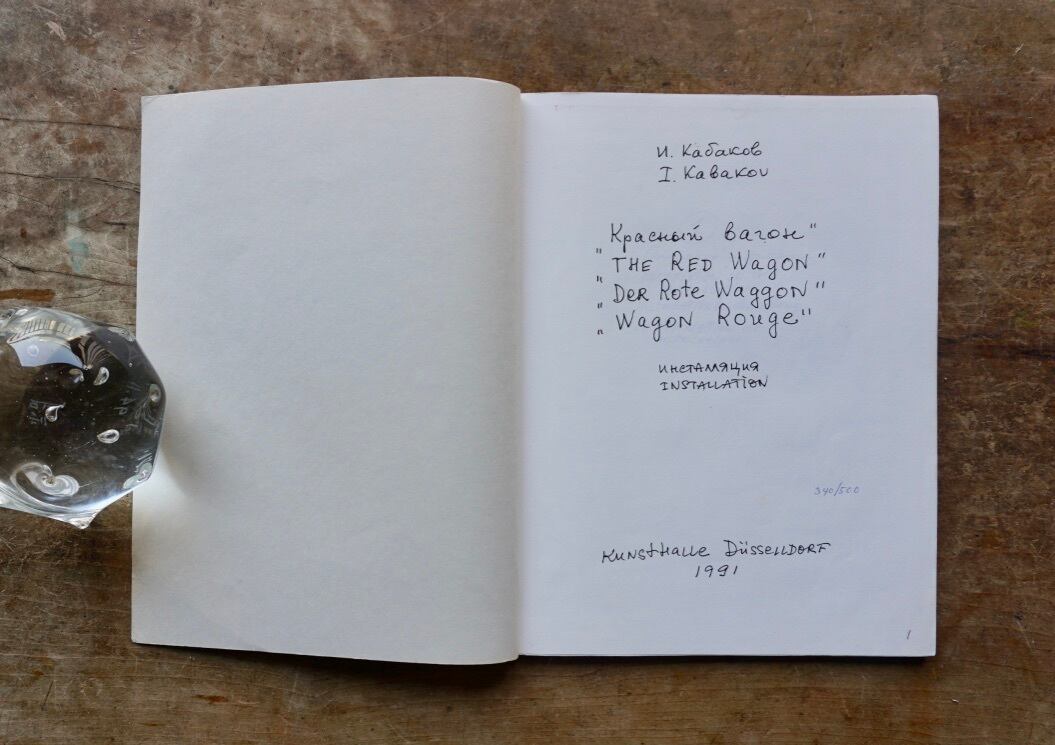 И. Кабаков
I. Kabakov
„Красный вагон"
„THE RED WagON"
„DER Rote WaggON"
„WagON Rouge"
инсталяция
INSTALLATION
340/500
KUNSTHALLE DÜSSELDORF
1991
1